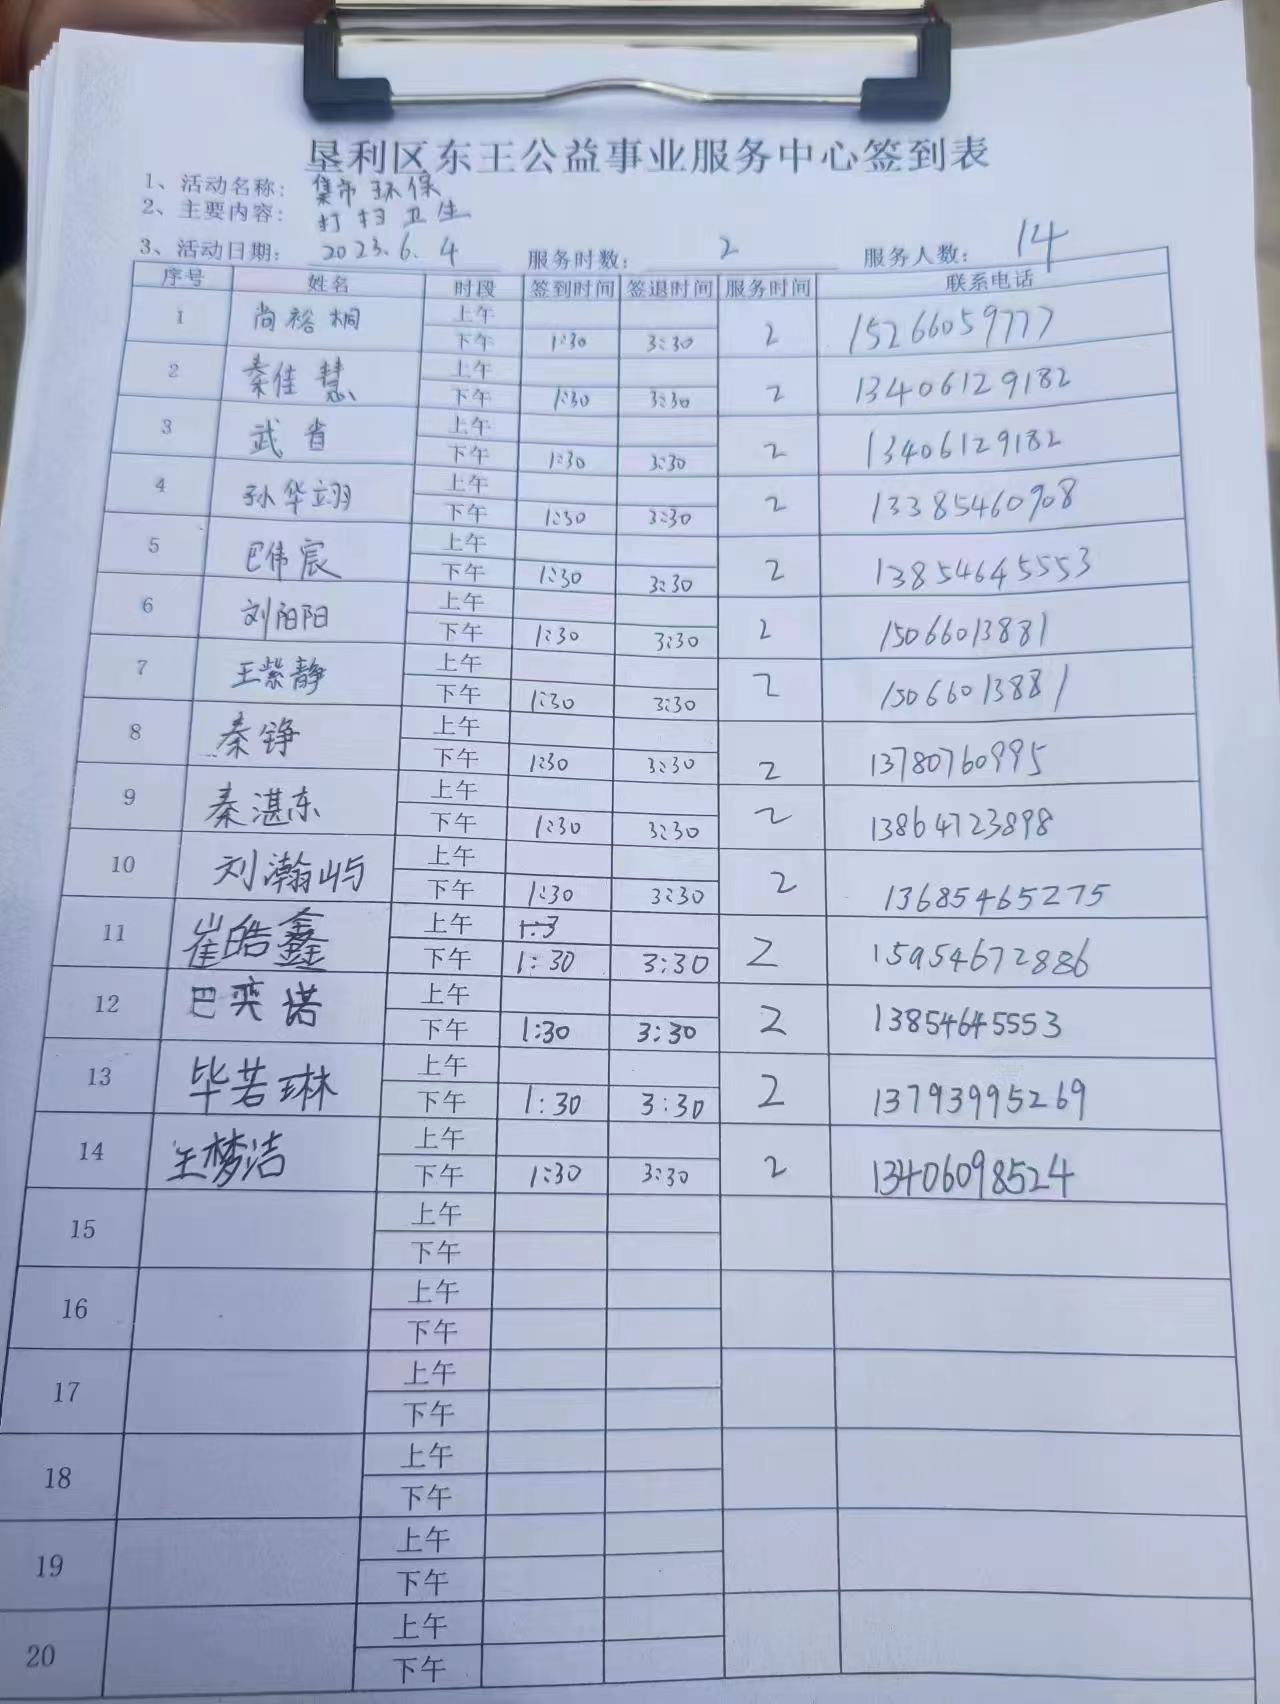 垦利区东王公益事业服务中心签到表
1、活动名称: 集市环保
2、主要内容: 打扫卫生
3、活动日期: 2023.6.4 服务时数: 2 服务人数: 14
序号 姓名 时段 签到时间 签退时间 服务时间 联系电话
1 尚裕桐 上午 2 15266059777
下午 1:30 3:30
2 秦佳慧 上午 2 13406129182
下午 1:30 3:30
3 武省 上午 2 13406129182
下午 1:30 3:30
4 孙华翊 上午 2 13385460908
下午 1:30 3:30
5 巴伟宸 上午 2 13854645553
下午 1:30 3:30
6 刘阳阳 上午 2 15066013881
下午 1:30 3:30
7 王紫静 上午 2 15066013881
下午 1:30 3:30
8 秦铮 上午 2 13780760995
下午 1:30 3:30
9 秦湛东 上午 2 13864723898
下午 1:30 3:30
10 刘瀚屿 上午 2 13685465275
下午 1:30 3:30
11 崔皓鑫 上午 1:3 2 15954672886
下午 1:30 3:30
12 巴奕诺 上午 2 13854645553
下午 1:30 3:30
13 毕若琳 上午 2 13793995269
下午 1:30 3:30
14 王梦洁 上午 2 13406098524
下午 1:30 3:30
15 上午
下午
16 上午
下午
17 上午
下午
18 上午
下午
19 上午
下午
20 上午
下午